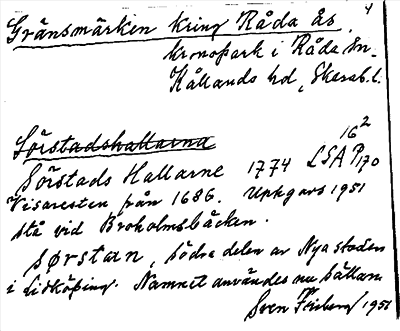 Gränsmärken kring Råda ås, 4
kronopark i Råda sn.
Kållands hd, Skarab. l.
Sörstadshallarna 16²
Sörstads Hallarne 1774 LSA P170
Visaresten från 1686. Uppgavs 1951
stå vid Broholmsbäcken.
sørstan, södra delen av Nya staden
i Lidköping. Namnet användes nu sällan
Sven 1951